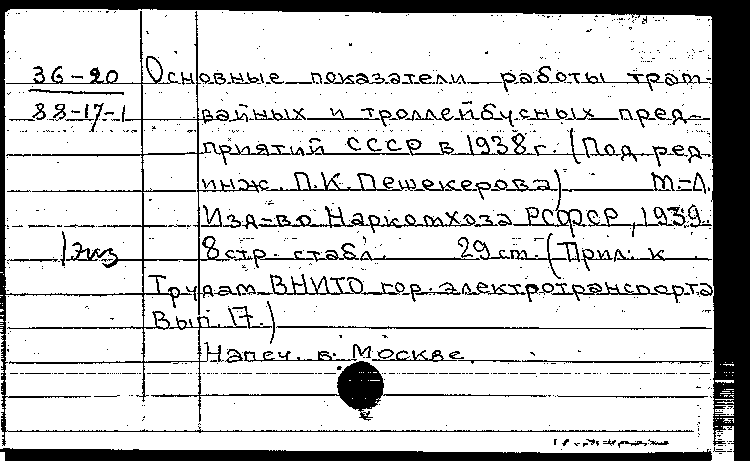 36-20 Основные показатели работы трам-
88-17-1 вайных и троллейбусных пред-
приятий СССР в 1938 г. (Под ред.
инж. П.К. Пешекерова). М-Л.
Изд-во Наркомхоза РСФСР, 1939.
1 экз 8 стр. с табл. 29 см. (Прил. к
Трудам ВНИТО гор. электротранспорта
Вып. 17.)
Напеч. в Москве.